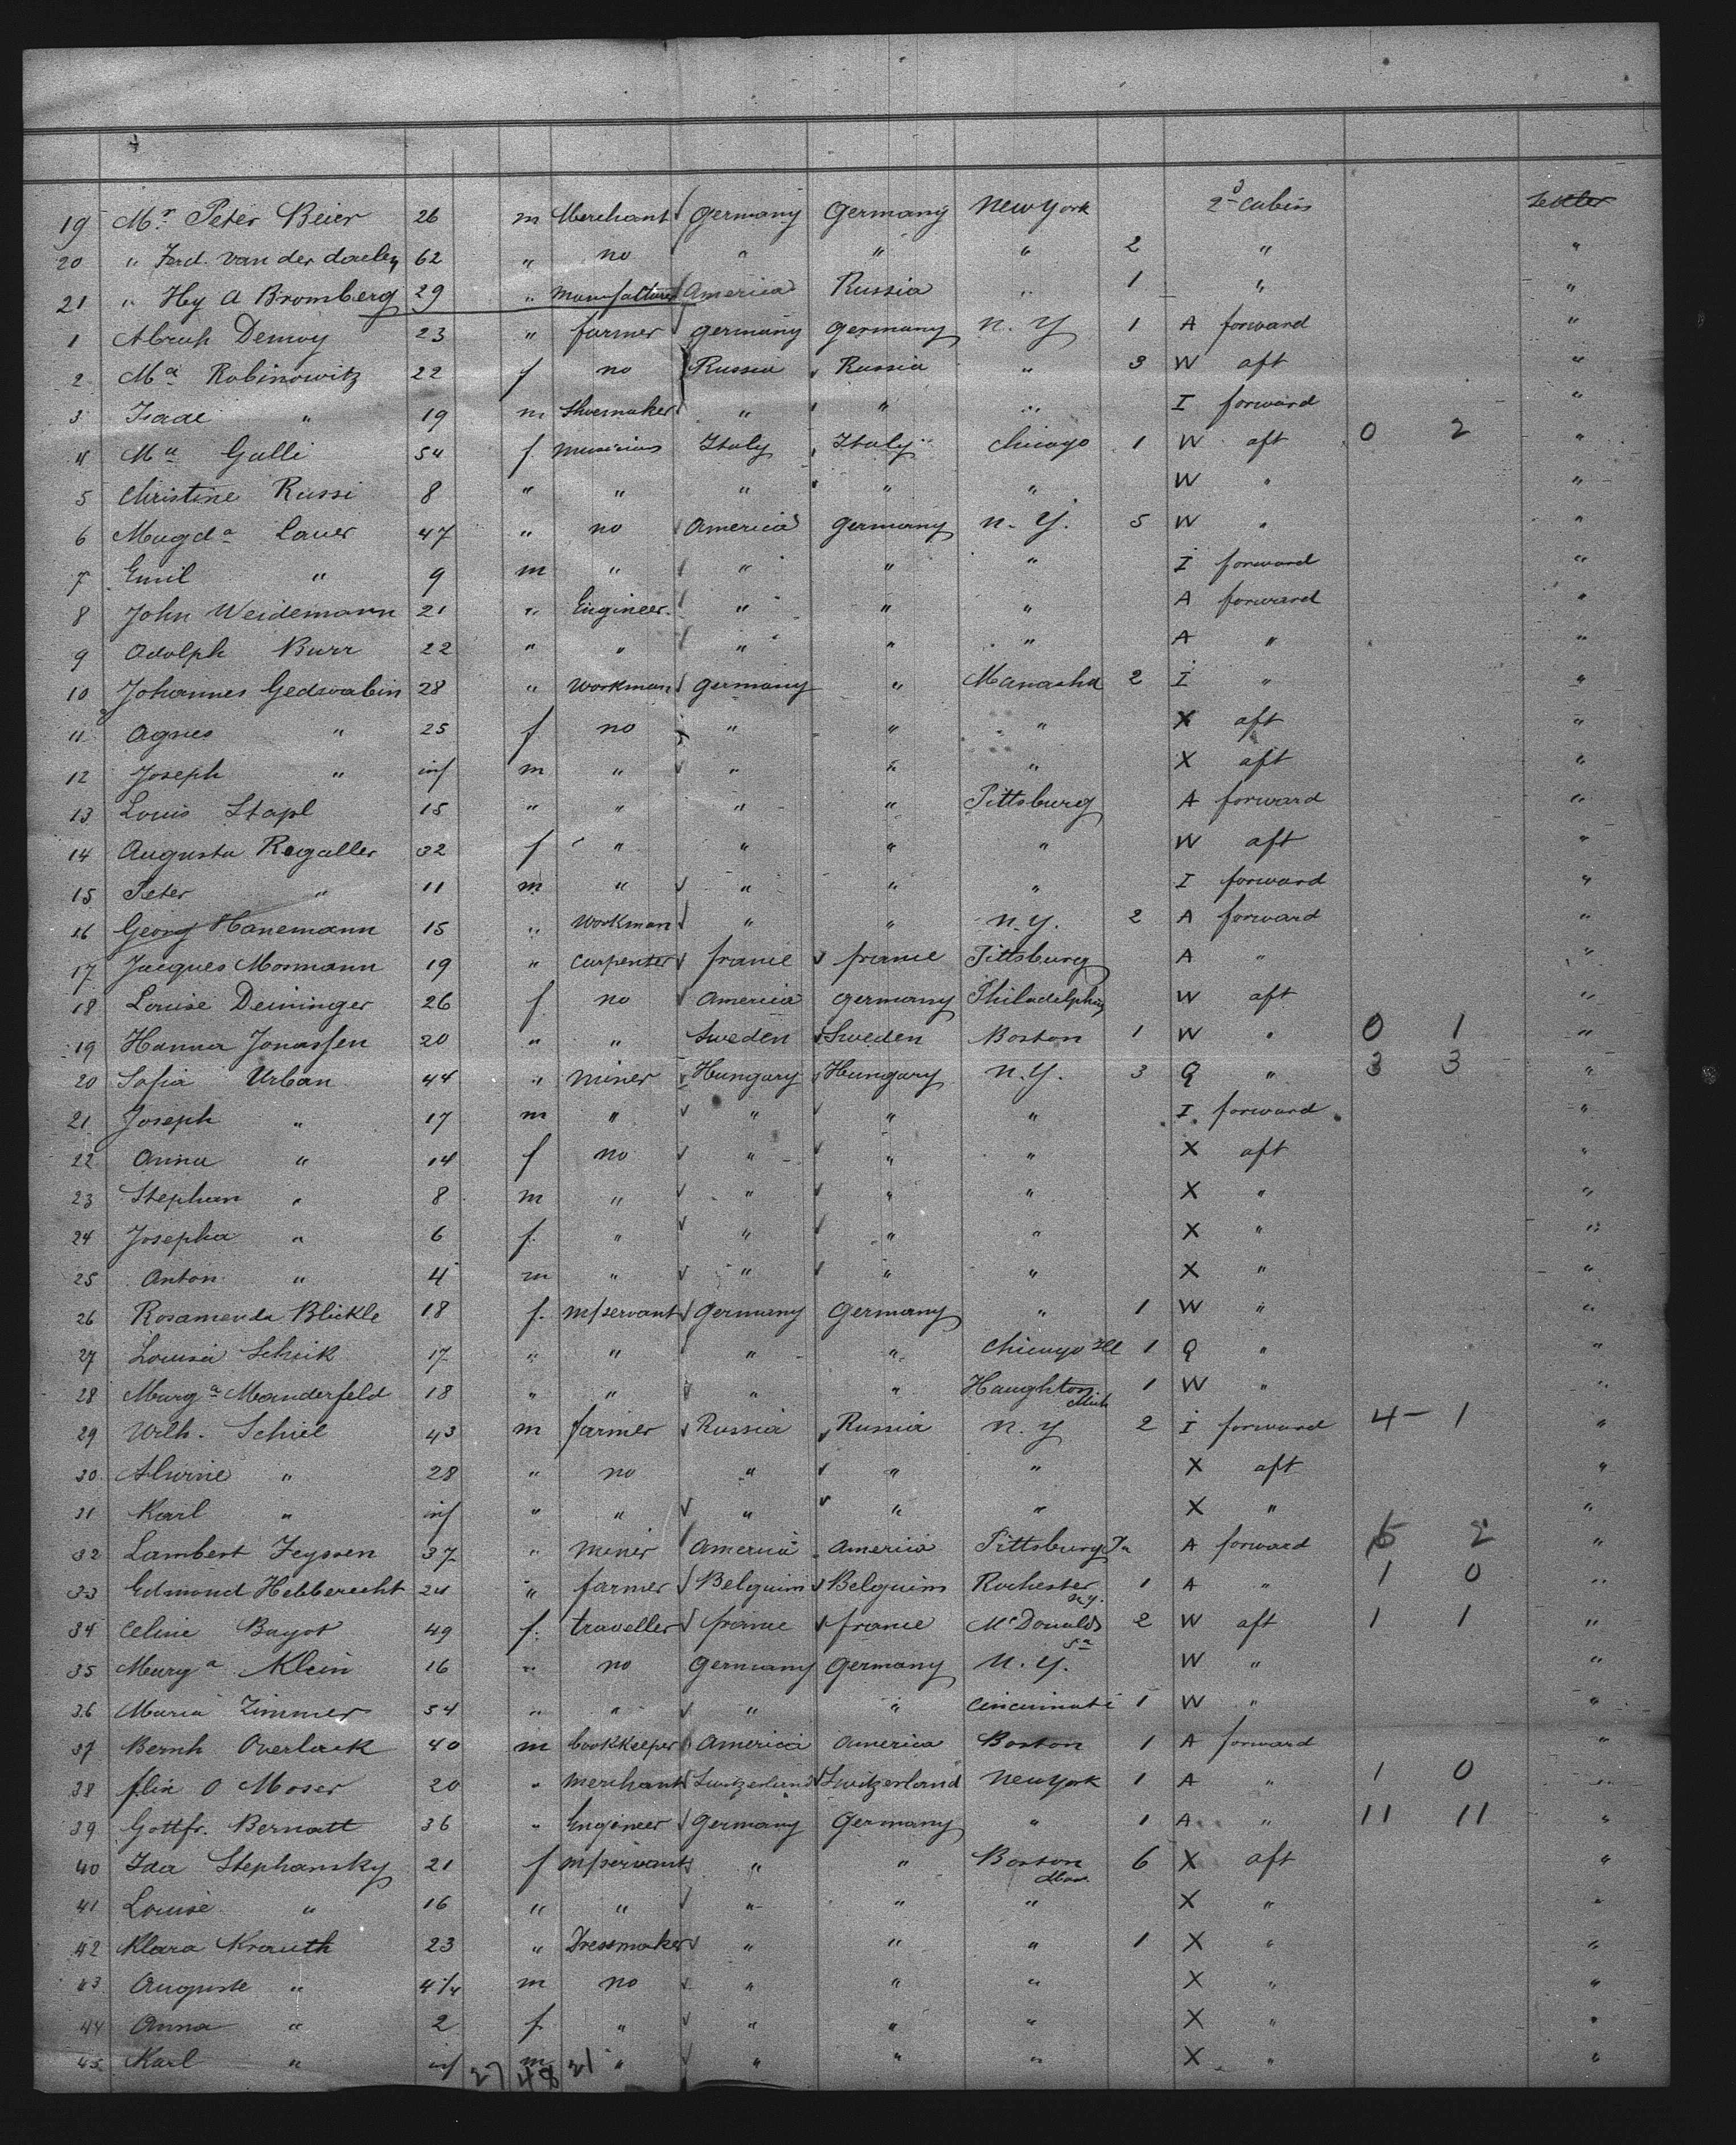 19 Mr Peter Beier 26 m Merchant Germany Germany New York 2d cabin Settler
20 " Ferd. van der daelen 62 " no " " " 2 " "
21 " Hy A Bromberg 29 " Manufacturer America Russia " 1 " "
1 Abrah 23 " farmer germany germany N. Y 1 A forward "
2 Ma Rabinowitz 22 f no Russia Russia " 3 W aft "
3 Isaac " 19 m Shoemaker " " " I forward "
4 Ma Galli 54 f musicus Italy Italy Chicago 1 W aft 0 2 "
5 Christine Russi 8 " " " " " W " "
6 Magda Lauer 47 " no America germany N. Y. 5 W " "
7 Emil " 9 m " " " " I forward "
8 John Weidemann 21 " Engineer " " " A forward "
9 Adolph Burr 22 " " " " " A " "
10 Johannes 28 " workman germany " Manasha 2 I " "
11 Agnes " 25 f no " " " X aft "
12 Joseph " inf m " " " " X aft "
13 Louis Stapl 15 " " " " Pittsburg A forward "
14 Augusta Rogaller 32 f " " " " W aft "
15 Peter " 11 m " " " " I forward "
16 Georg Hanemann 15 " workman " " N.Y. 2 A forward "
17 Jacques Mormann 19 " carpenter france france Pittsburg A " "
18 Louise Deininger 26 f no America germany Philadelphia W aft "
19 Hanna Jonassen 20 " " Sweden Sweden Boston 1 W " 0 1 "
20 Sofia Urban 44 " miner Hungary Hungary N.Y. 3 Q " 3 3 "
21 Joseph " 17 m " " " " I forward "
22 Anna " 14 f no " " " X aft "
23 Stephan " 8 m " " " " X " "
24 Josepha " 6 f. " " " " X " "
25 Anton " 4 m " " " " X " "
26 Rosamenda Blickle 18 f. m/servant Germany Germany " 1 W " "
27 Louisa Schick 17 " " " " Chicago Ill 1 Q " "
28 Marga Manderfeld 18 " " " " Haughton Mich 1 W " "
29 Wilh. Schiel 43 m farmer Russia Russia N. Y 2 I forward 4 - 1 "
30 Alwine " 28 " no " " " X aft "
31 Karl " inf " " " " " X " "
32 Lambert Feyssen 37 " miner America America Pittsburg Pa A forward 5 2 "
33 Edmond Hebberecht 24 " farmer Belguim Belguim Rochester N.Y. 1 A " 1 0 "
34 Celine Bayot 49 f. traveller france france McDonalds Pa 2 W aft 1 1 "
35 Marga Klein 16 " no Germany Germany N. Y. W " "
36 Maria Zimmer 54 " " " " Cincinnati 1 W " "
37 Bernh Overlack 40 m bookkeeper America America Boston 1 A forward "
38 flix O Moser 20 " merchant Switzerland Switzerland New York 1 A " 1 0 "
39 Gottfr. Bernatt 36 " Engineer Germany Germany " 1 A " 11 11 "
40 Ida Stephansky 21 f m/servant " " Boston Mass. 6 X aft "
41 Louise " 16 " " " " " X " "
42 Klara Krauth 23 " Dressmaker " " " 1 X " "
43 Auguste " 4 1/4 m no " " " X " "
44 Anna " 2 f " " " " X " "
45 Karl " inf m " " " " X " "
27 48 21